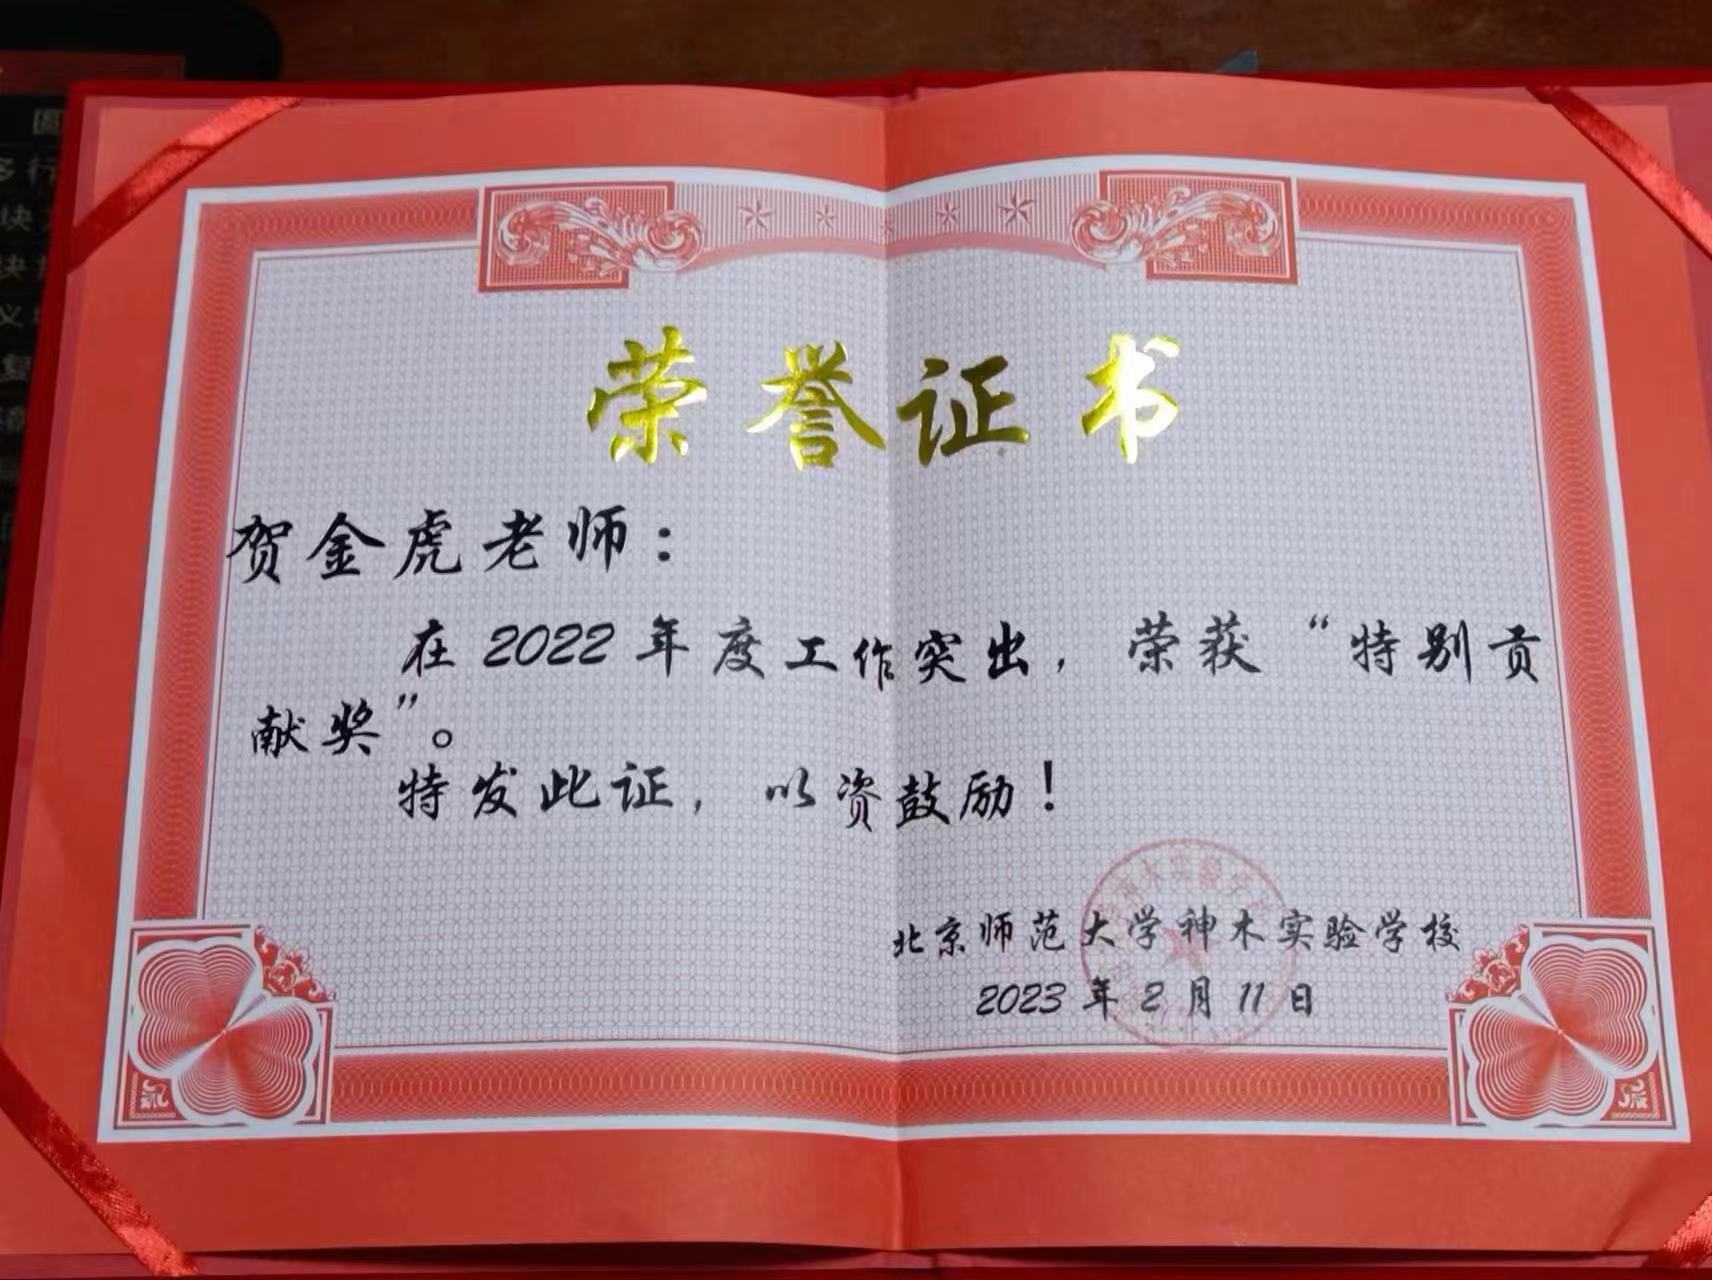 荣誉证书
贺金虎老师：
在2022年度工作突出，荣获“特别贡
献奖”。
特发此证，以资鼓励！
北京师范大学神木实验学校
2023年2月11日